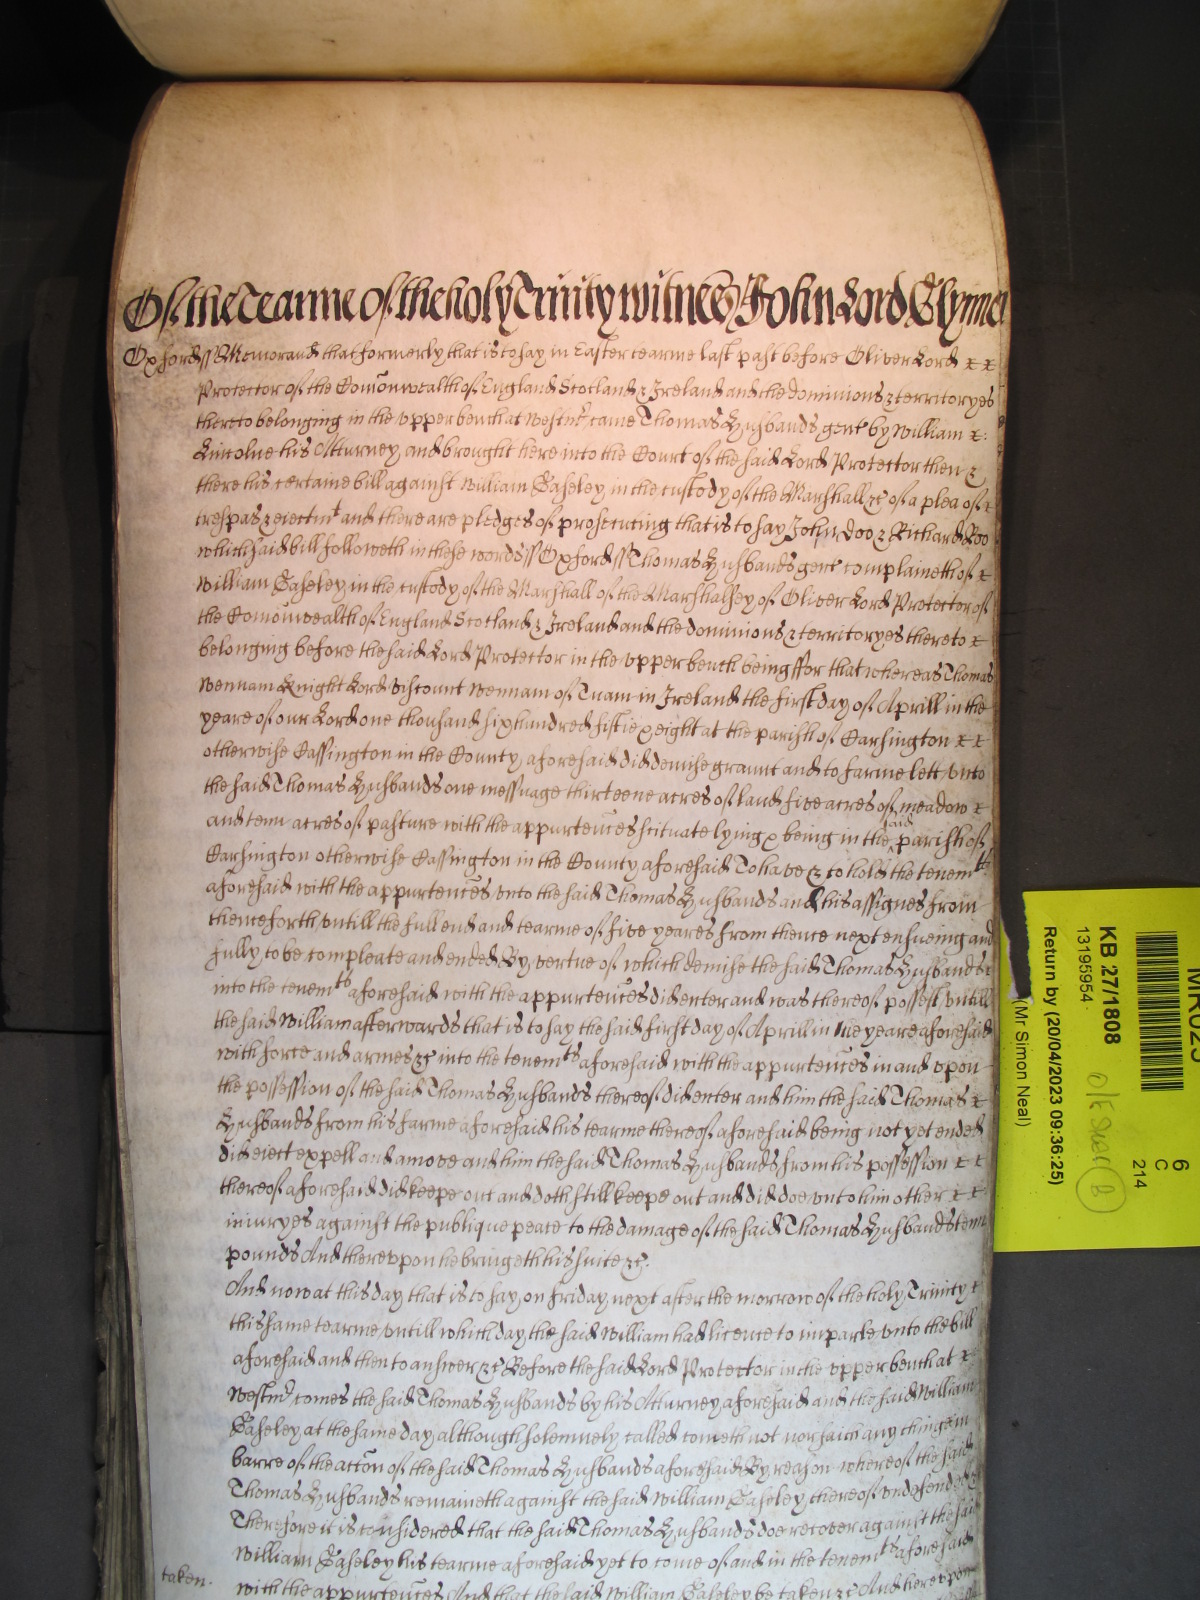 Of the Tearme of the holy Trinity witnes John Lord Glynne
Oxford ss Memorand that formerly that is to say in Easter tearme last past before Oliver Lord
Protector of the Com̄onwealth of England Scotland & Ireland and the dominions & territoryes
thereto belonging in the vpper bench at Westmr came Thomas Husbands gent by William
Lincolne his Atturney and brought here into the Court of the said Lord Protector then &
there his certaine bill against William Easeley in the custody of the Marshall &c of a plea of
trespas & eiectmt and there are pledges of prosecuting that is to say John Doo & Richard Roo
which said bill followeth in these words ss Oxford ss Thomas Husbands gent complaineth of
William Easeley in the custody of the Marshall of the Marshalsey of Oliver Lord Protector of
the Com̄onwealth of England Scotland & Ireland and the dominions & territoryes thereto
belonging before the said Lord Protector in the vpper bench being ffor that whereas Thomas
Wennam Knight Lord Viscount Wennam of Tuam in Ireland the first day of Aprill in the
yeare of our Lord one thousand six hundred fiftie & eight at the parish of Carsington
otherwise Cassington in the County aforesaid did demise graunt and to farme lett vnto
the said Thomas Husbands one messuage thirteene acres of land five acres of meadow
and tenn acres of pasture with the appurtenc̄es scituate lying & being in the said parish of
Carsington otherwise Cassington in the County aforesaid To have & to hold the tenemts
aforesaid with the appurtenc̄es vnto the said Thomas Husbands and his assignes from
thenceforth vntill the full end and tearme of five yeares from thence next ensueing and
fully to be compleate and ended By vertue of which demise the said Thomas Husbands
into the tenemts aforesaid with the appurtenc̄es did enter and was thereof possest vntill
the said William afterwards that is to say the said first day of Aprill in the yeare aforesaid
with force and armes &c into the tenemts aforesaid with the appurtenc̄es in and vpon
the possession of the said Thomas Husbands thereof did enter and him the said Thomas
Husbands from his farme aforesaid his tearme thereof aforesaid being not yet ended
did eiect expell and amove and him the said Thomas Husbands from his possession
thereof aforesaid did keepe out and doth still keepe out and did doe vnto him other
iniuryes against the publique peace to the damage of the said Thomas Husbands tenn
pounds And therevpon he bringeth his suite &c.
And now at this day that is to say on Friday next after the morrow of the holy Trinity
this same tearme vntill which day the said William had licence to imparle vnto the bill
aforesaid and then to answer &c Before the said Lord Protector in the vpper bench at
Westmr comes the said Thomas Husbands by his Atturney aforesaid and the said William
Easeley at the same day although solemnely called cometh not nor saith any thing in
barre of the acc̄on of the said Thomas Husbands aforesaid By reason whereof the said
Thomas Husbands remaineth against the said William Easeley thereof vndefended
Therefore it is considered that the said Thomas Husbands doe recover against the said
William Easeley his tearme aforesaid yet to come of and in the tenemts aforesaid
taken.
with the appurtenc̄es And that the said William Easeley be taken &c And herevpon
6
C
214
KB 27/1808
13195954
Return by (20/04/2023 09:36:25)
(Mr Simon Neal)
B